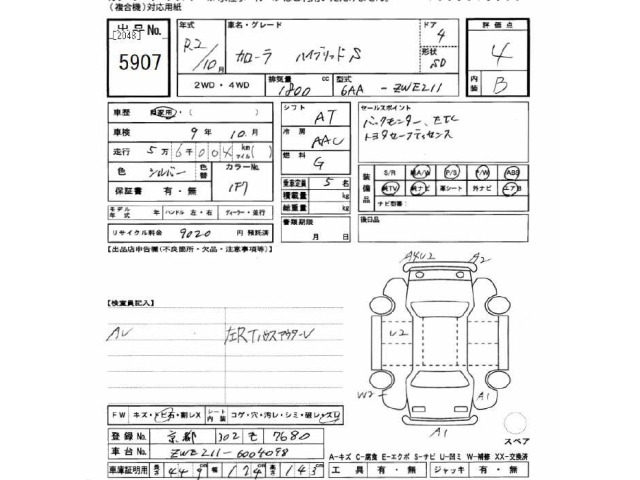 (複合機)対応用紙
出品No. 年式 車名・グレード ドア 評価点
[2048] R2/10月 カローラ ハイブリッドS 4 4
5907 形状 SD
2WD・4WD 排気量 1800 cc 型式 6AA-ZWE211 内装 B
車歴 自家用・( ) シフト AT セールスポイント
車検 9年10月 冷房 AAC バックモニター、ETC
走行 5万6千004km マイル( ) 燃料 G トヨタセーフティセンス
色 シルバー 色替 カラーNo. 1F7
保証書 有・無
乗車定員 5名
積載量 kg
総重量 kg
装備品 S/R 純A/W P/S P/W ABS
純TV 純ナビ 革シート 外ナビ エアB
ナビ型番:
モデル年式 年 ハンドル 左・右 ディーラー・並行
書類期限 月 日
後日品
リサイクル料金 9020 円 預託済
【出品店申告欄(不良箇所・欠品・注意事項等)】
A4U2 A2
【検査員記入】
AU 左RTハウスアウターU
U2
W2 A1
A1
FW キズ・トビ石・割レX シート内装 コゲ・穴・汚レ・シミ・破レ・スレ
スペア
登録No. 京都 302 モ 7680
車台No. ZWE211-6004098
A-キズ C-腐食 E-エクボ S-サビ U-凹ミ W-補修 XX-交換済
車庫証明用 長さ 449cm 幅 174cm 高さ 145cm 工具 有・無 ジャッキ 有・無